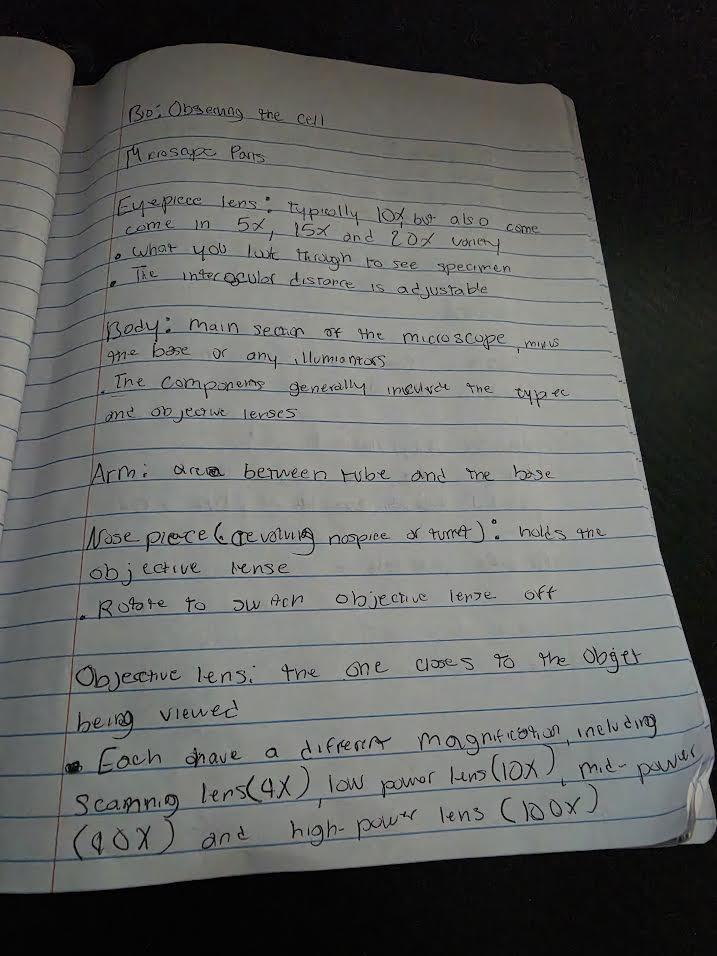 Bio: Observing the cell
Microscape Parts
Eyepiece lens: typically 10x, but also come
come in 5x, 15x and 20x variety
• What you look through to see specimen
• The interocular distance is adjustable
Body: main section of the microscope, minus
the base or any illumiantors
• The components generally include the
and objective lenses
Arm: area between tube and the base
Nose piece (revolving nospice or turret): holds the
objective lense
• Rotate to switch objective lense off
Objective lens: the one closes to the objet
being viewed
• Each have a different magnification, including
scannig lens(4X), low power lens(10X), mid-power
(40X) and high-power lens (100X)